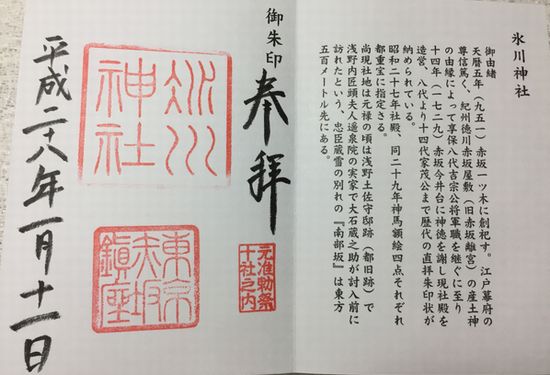 氷川神社
御由緒
天暦五年（九五一）赤坂一ツ木に創祀す。江戸幕府の
尊信篤く、紀州徳川赤坂屋敷（旧赤坂離宮）の産土神
の由縁によって享保八代吉宗公将軍職を継ぐに至り
十四年（一七二九）赤坂今井台に神徳を謝し現社殿を
造営、八代より十四代家茂公まで歴代の直拝朱印状が
納められている。
昭和二十七年社殿、同二十九年神馬額絵四点それぞれ
都重宝に指定さる。
尚現社地は元禄の頃は浅野土佐守邸跡（都旧跡）で
浅野内匠頭夫人遥泉院の実家で大石蔵之助が討入前に
訪れたという、忠臣蔵雪の別れの『南部坂』は東方
五百メートル先にある。
御朱印
奉拝
元准勅祭
十社之内
氷川
神社
東京
赤坂
鎮座
平成二十八年一月十一日